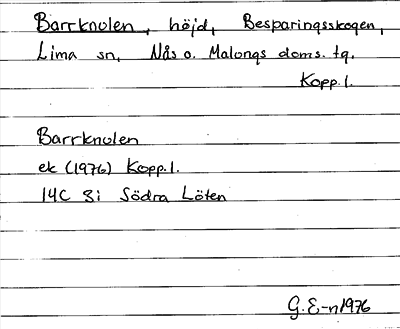 Barrknulen, höjd, Besparingsskogen,
Lima sn, Nås o. Malungs doms. tg.
Kopp. l.
Barrknulen
ek (1976) Kopp. l.
14C 8i Södra Löten
G. E-n 1976